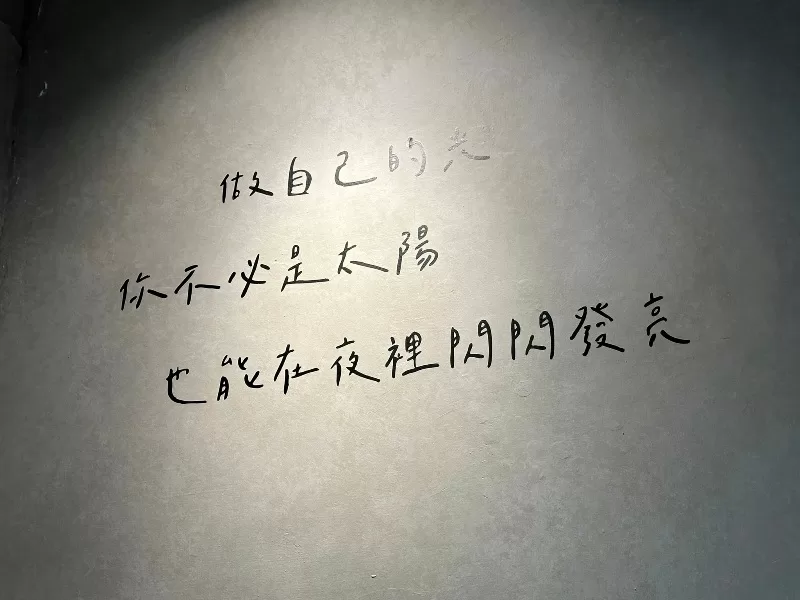 做自己的光
你不必是太陽
也能在夜裡閃閃發亮